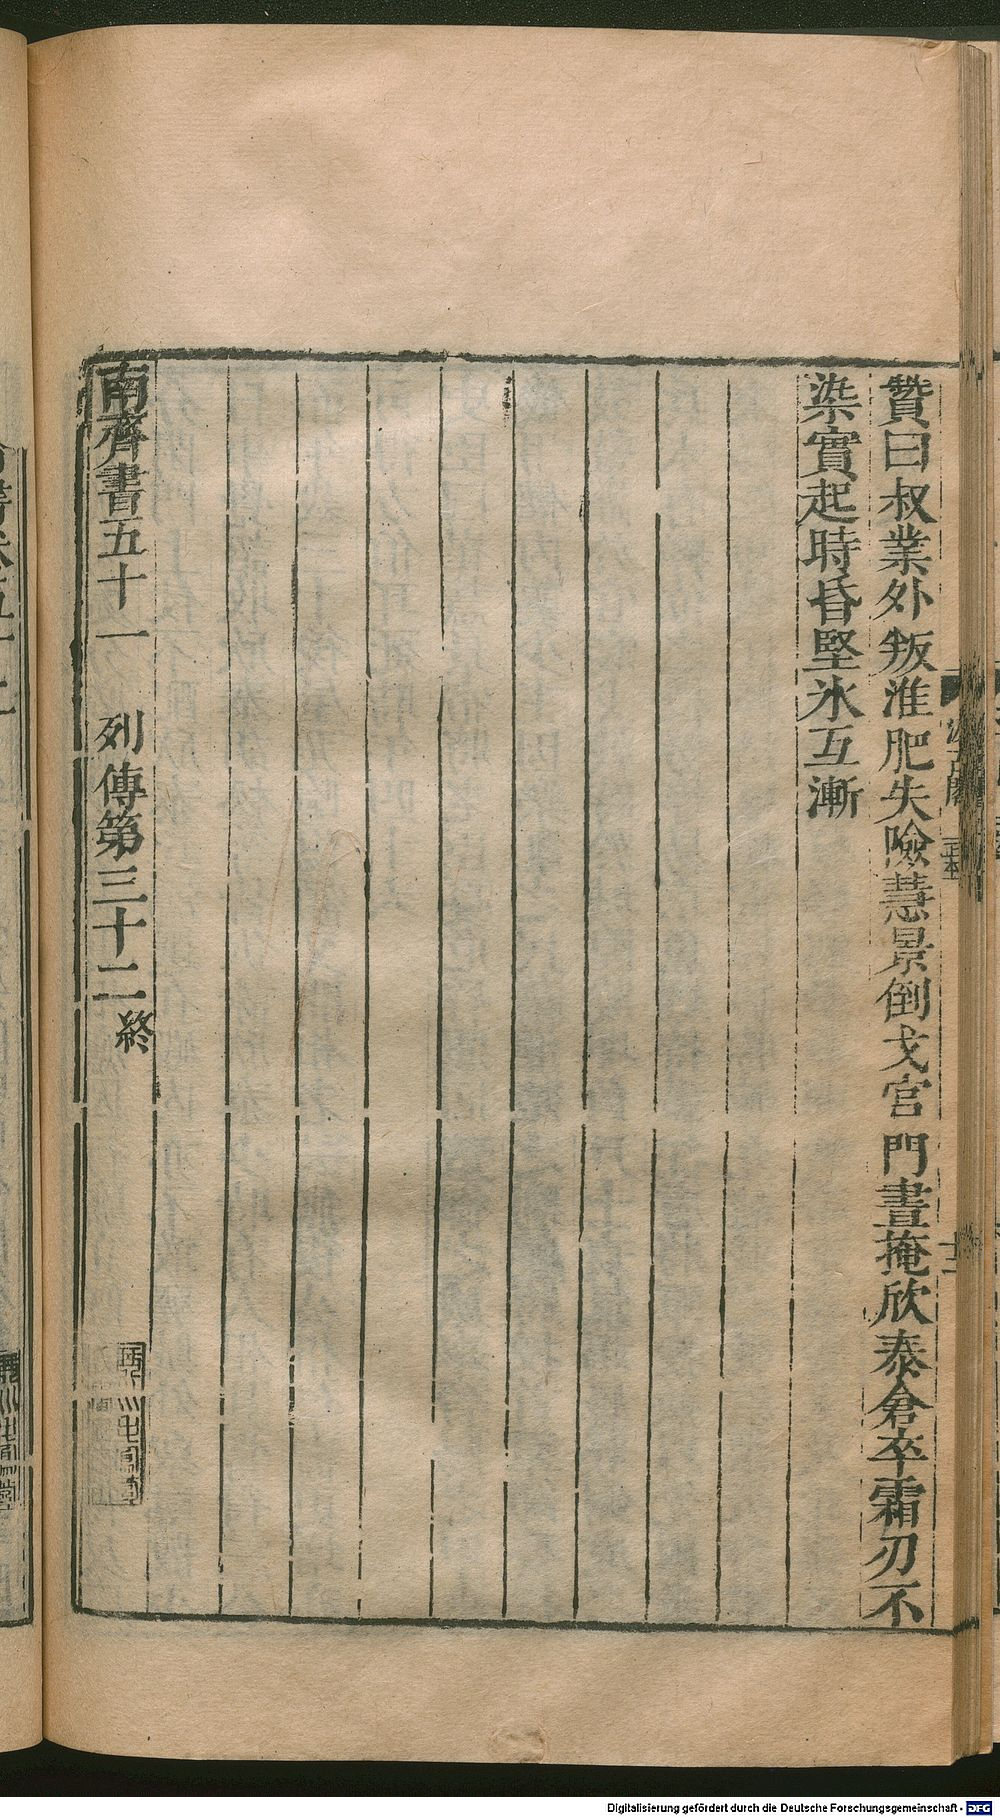 贊曰叔業外叛淮肥失險慧景倒戈宮門晝掩欣泰倉卒霜刃不
染實起時昏堅氷互漸
南齊書五十一 列傳第三十二 終
Digitalisierung gefördert durch die Deutsche Forschungsgemeinschaft - DFG